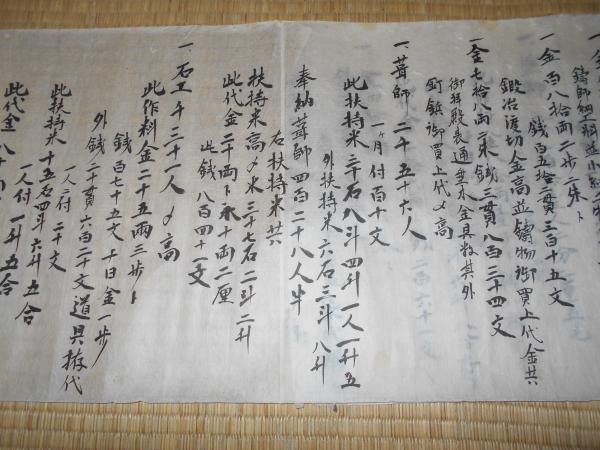 鋳師細工料並小
一金百八拾両二歩二朱ト
銭百五拾二貫三百十五文
鍛冶渡切金高並鋳物御買上代金共
一金七拾八両二朱銭三貫八百三十四文
御拝殿表通垂木金具教其外
釘鎹御買上代〆高
一葺師二千五十六人
一ヶ月付百十文
此扶持米三十石八斗四升一人一升五
外扶持米六石三斗八升
奉納葺師四百二十八人半
右扶持米共
扶持米高〆米三十七石二斗二升
此代金二十両ト永十両二厘
此銭八百四十一文
一石工千三十一人〆高
此作料金二十五両三歩ト
銭百七十五文十日金一歩
外銭二十貫六百二十文道具拵代
一人ニ付二十文
此扶持米十五石四斗六升五合
一人付一升五合
此代金八十両